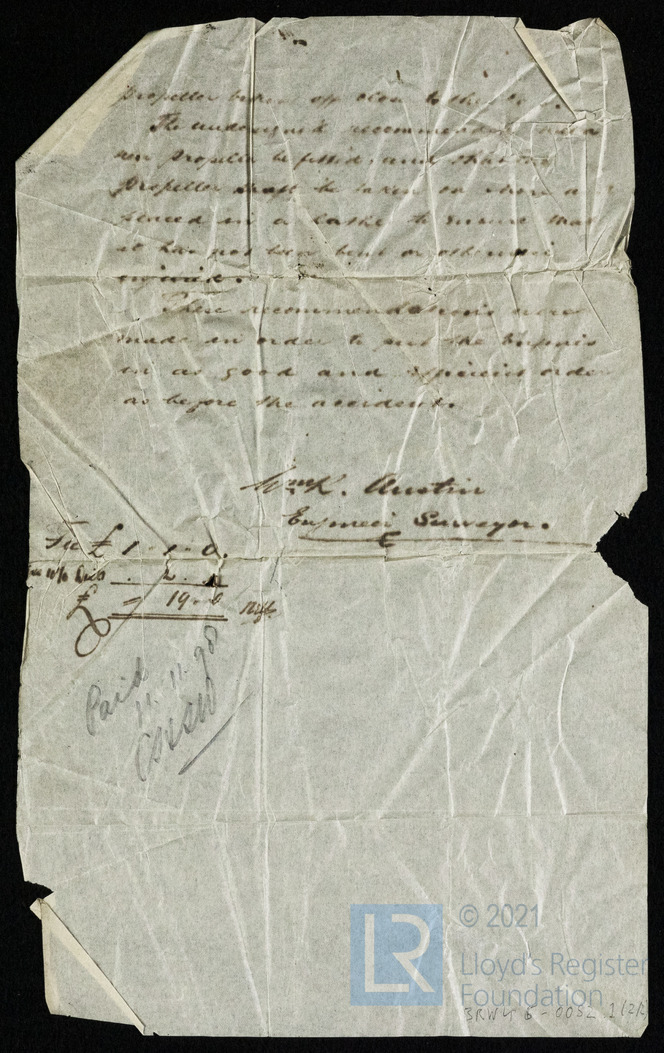 propeller broken off close to the
The undersigned recommended
new propeller be fitted, and that the
propeller shaft be taken on shore &
placed in a lathe to ensure that
it has not been bent or otherwise
injured.
These recommendations were
made in order to put the Engines
in as good and efficient order
as before the accident.
Wm K. Austin
Engineer Surveyor.
Fee £ 1 - 1 - 0.
10% Disc . 2 .
£ - 19 - 0
Paid
11.11.90
© 2021
LR
Lloyd's Register
Foundation
BRWK B - 0082 1(2/2)